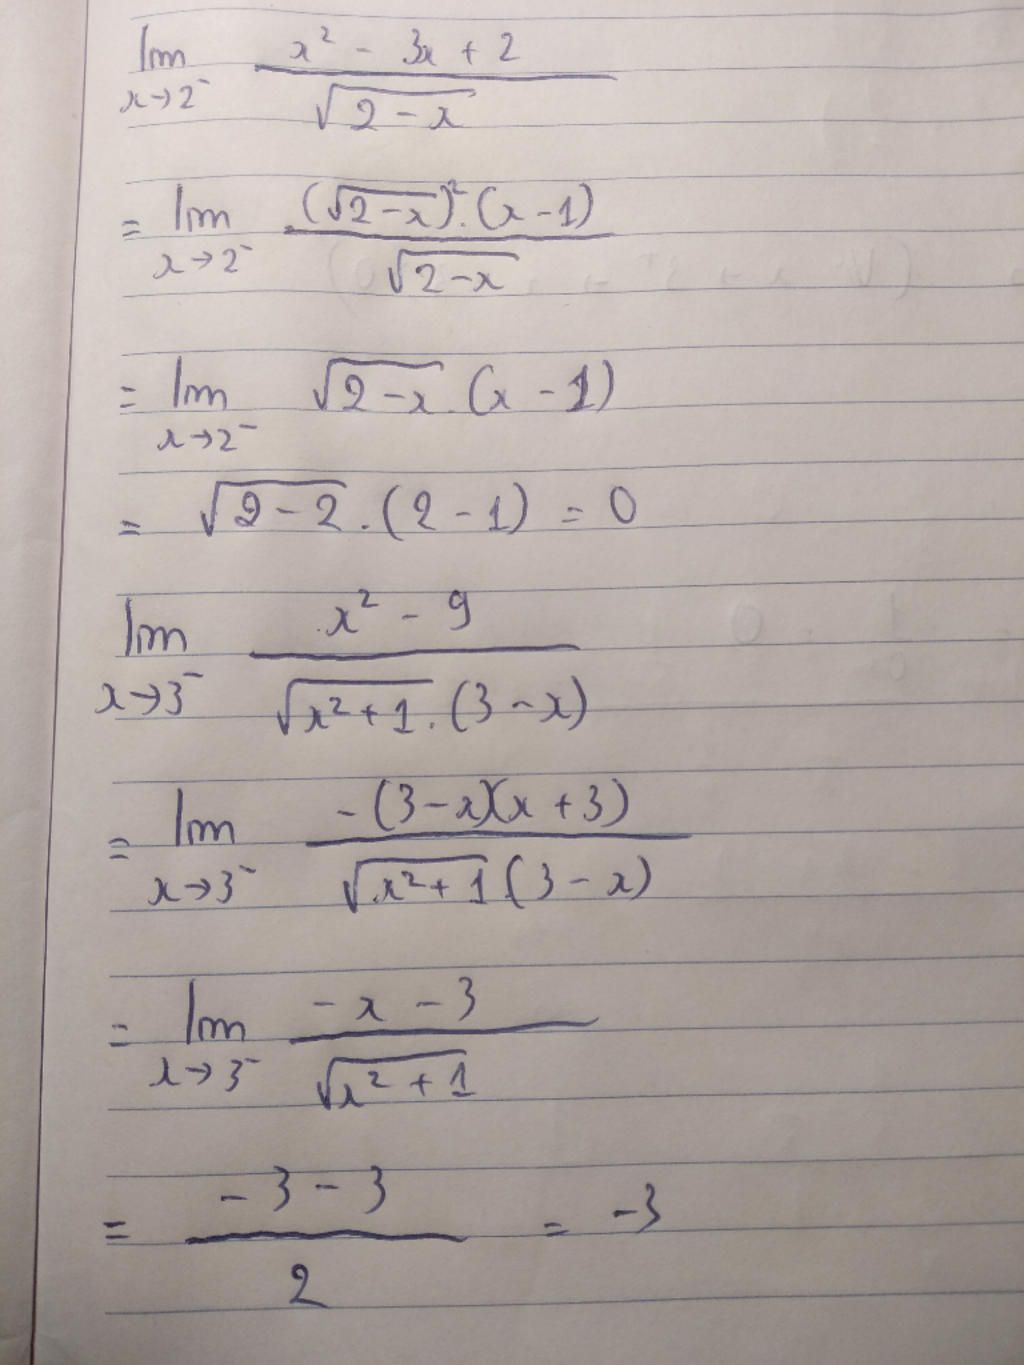 lim x→2⁻ (x² - 3x + 2) / √(2-x)
= lim x→2⁻ ((√(2-x))².(x-1)) / √(2-x)
= lim x→2⁻ √(2-x).(x-1)
= √(2-2).(2-1) = 0
lim x→3⁻ (x² - 9) / (√(x²+1).(3-x))
= lim x→3⁻ (-(3-x)(x+3)) / (√(x²+1)(3-x))
= lim x→3⁻ (-x-3) / √(x²+1)
= (-3-3) / 2 = -3